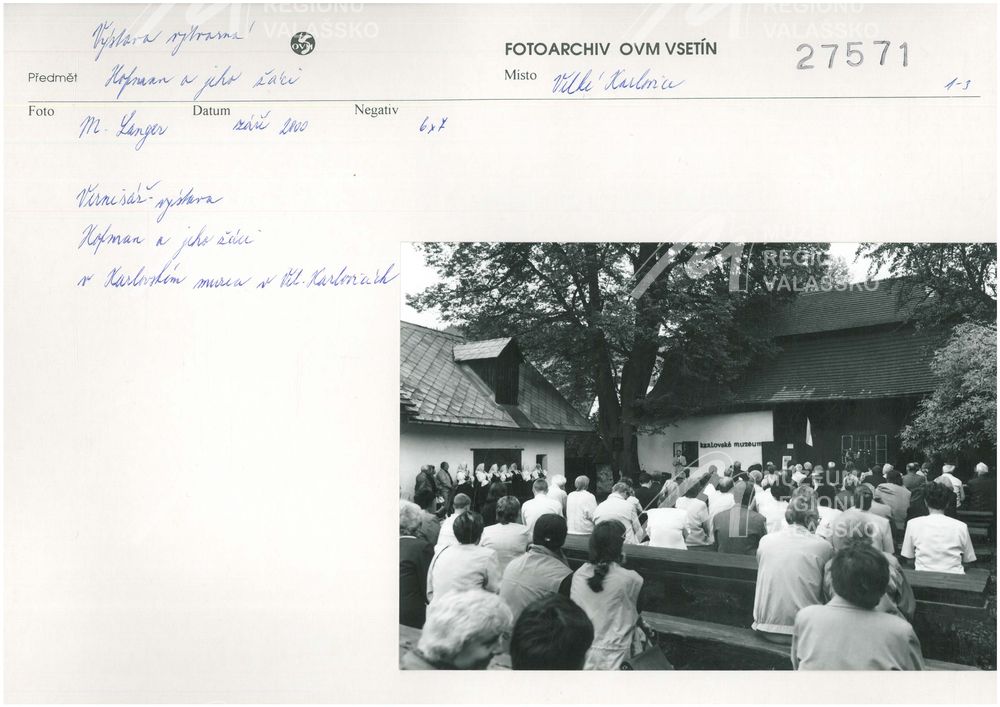 Výstava výtvarná
OVM
FOTOARCHIV OVM VSETÍN
27571
Předmět Hofman a jeho žáci
Místo Velké Karlovice
1-3
Foto M. Langer
Datum září 2000
Negativ 6x7
Vernisáž - výstava
Hofman a jeho žáci
v Karlovském muzeu v Vel. Karlovicích
karlovské muzeum
MUZEUM REGIONU VALAŠSKO